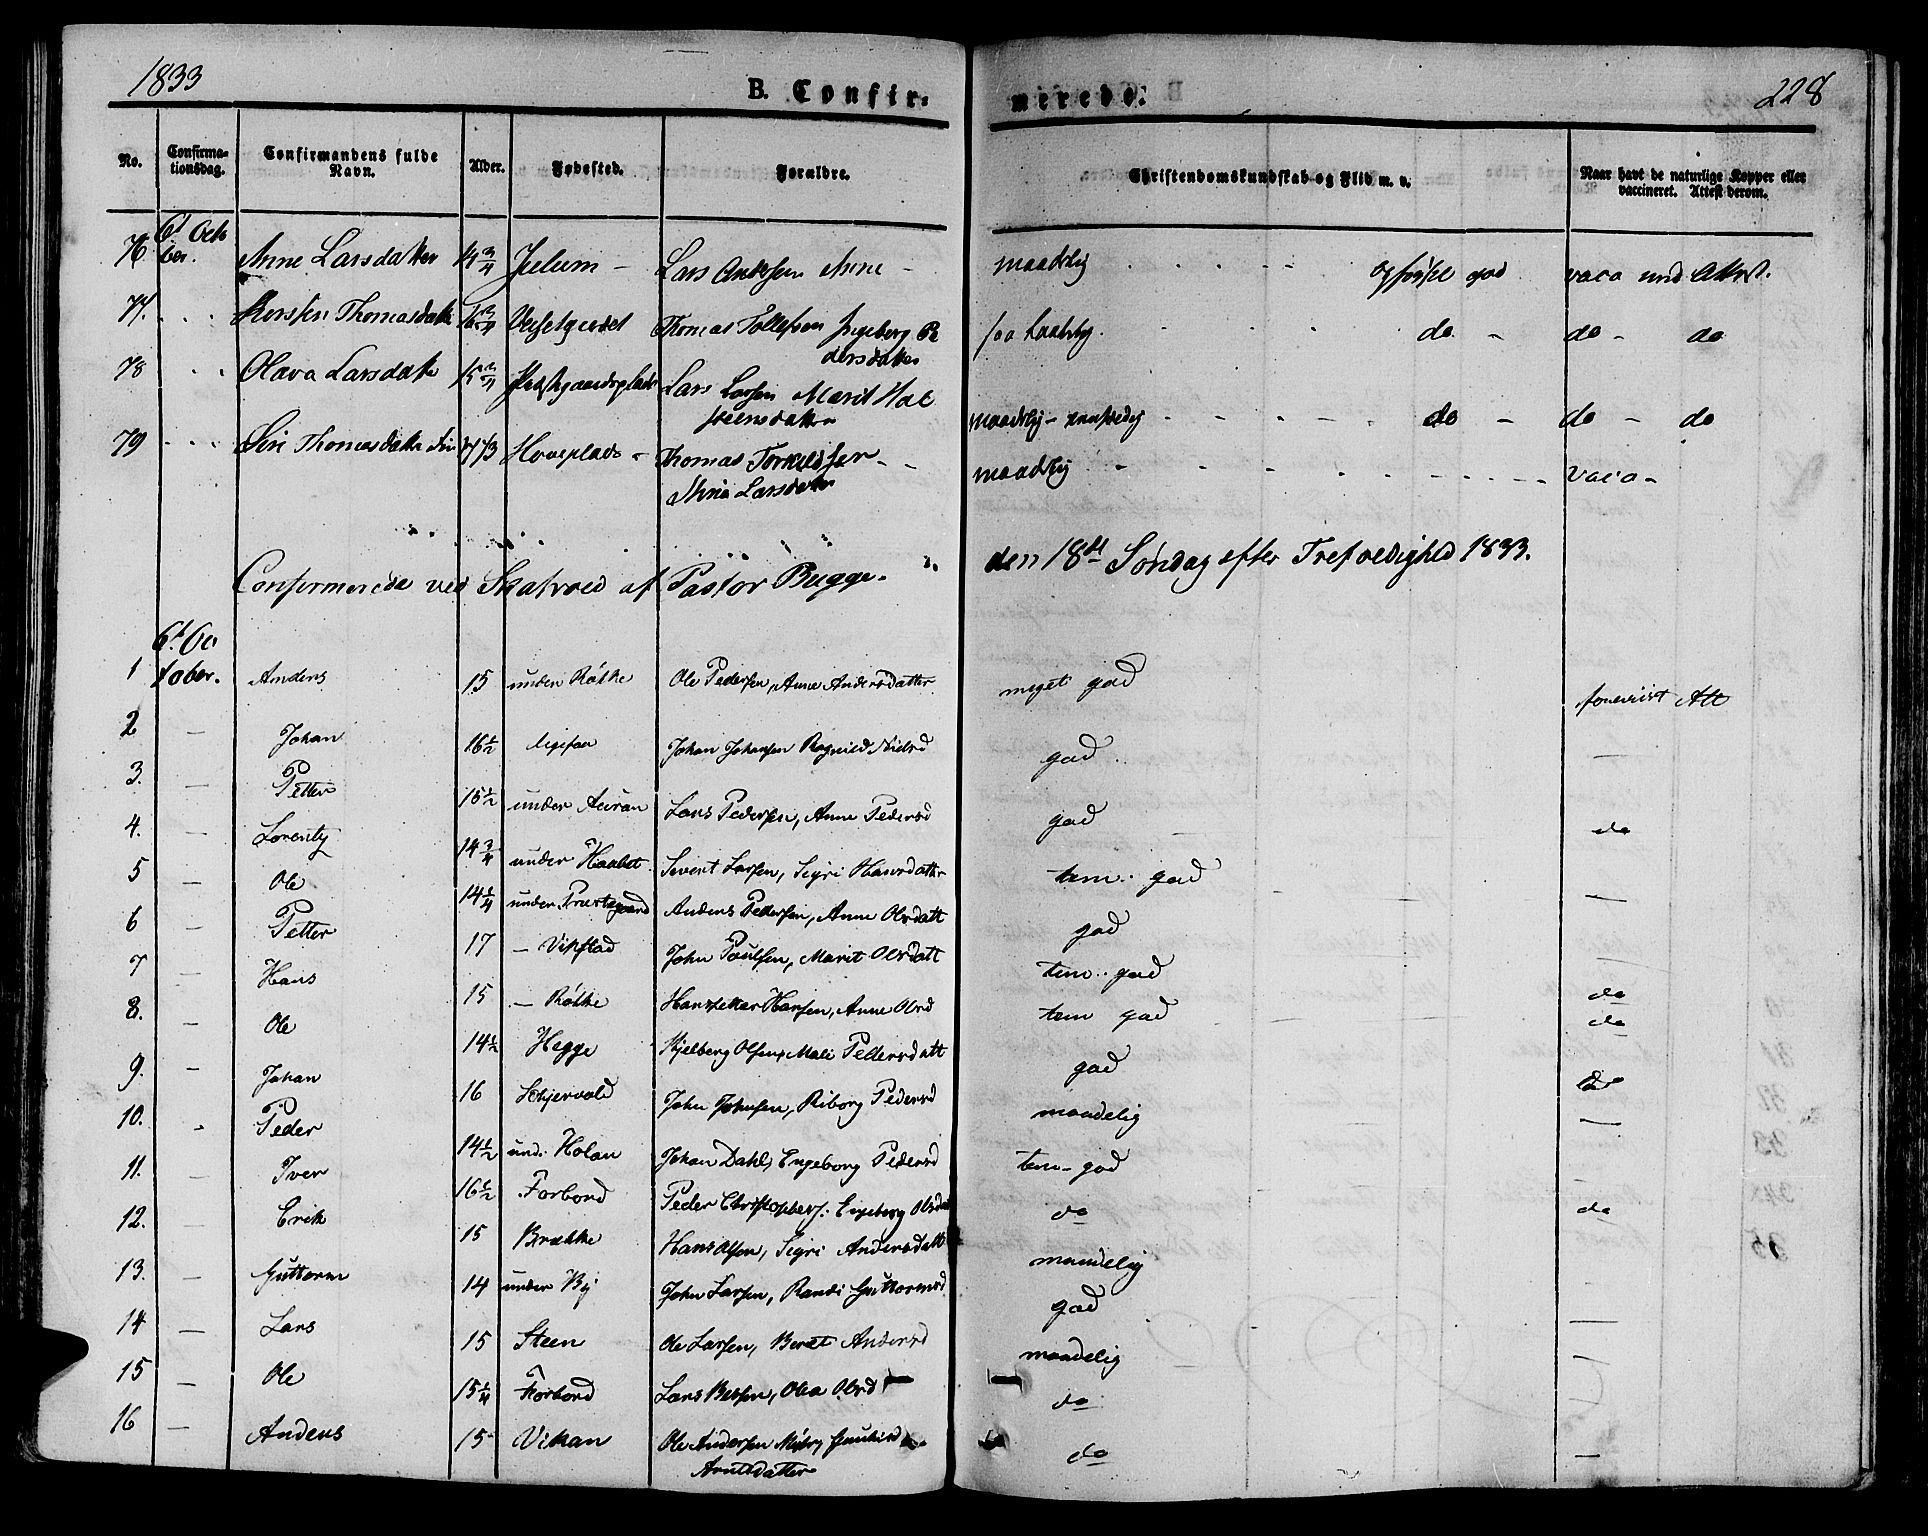 1833
B. Confirmerede.
228
No.
Confirmationsdag.
Confirmandens fulde Navn.
Alder.
Fødested.
Forældre.
Christendomskundskab og Flid m. v.
Naar havt de naturlige Kopper eller vaccineret. Attest derom.
76 6t October. Anne Larsdatter 14 3/4 Lars Andersen Anne - maadelig god
77. Thomasdatter Thomas Tollefsen Ingeborg Pedersdatter do - do - do
78 Olava Larsdatter 15 3/4 Lars Larsen Marit Haltsteensdatter maadelig - do - do - do
79 Siri Thomasdatter Hoveplads - Thomas Torkildsen - Larsdatter maadelig vacc -
Confirmerede ved Skatvold af Pastor Bugge. den 18de Søndag efter Trefoldighed 1833.
6t October.
1 Anders 15 under Røkke Ole Pedersen, Anne Andersdatter meget god foreviist Att
2 - Johan 16 1/2 Johan Johansen Ragnild Nielsd god. -
3. - Petter 15 1/2 under Auran Lars Pedersen, Anne Pedersd god do
4. - Lorentz 14 3/4 under Sivert Larsen, Sigri Hansdatter tem. god -
5 - Ole 14 1/4 under Præstegaard Anders Pedersen, Anne Olsdatt god
6 - Petter 17 - Vikstad John Paulsen, Marit Olsdatt tem. god do
7 - Hans 15 - Røkke Hansen, Anne Olsd tem god do
8. - Ole 14 1/2 Hegge Kjelberg Olsen, Mali Pedersdatt god do
9. - Johan 16 Skjervold John Johnsen, Riborg Pedersd maadelig -
10. - Peder 14 1/2 und. Holan Johan Dahl, Engeborg Pedersd tem - god
11. - Iver 16 1/2 Forbord Peder Christophers. Engeborg Olsdatt do do
12. - Erik 15 Brække Hans Olsen, Sigri Andersdatt maadelig
13. - Guttorm 14 under By John Larsen, Randi Guttormsd god -
14 - Lars 15 Steen Ole Larsen, Beret Andersd maadelig
15 - Ole 15 1/4 Forbord Lars Olsd do
16 - Anders 15 Vikan Ole Andersen do -
Arntsdatter